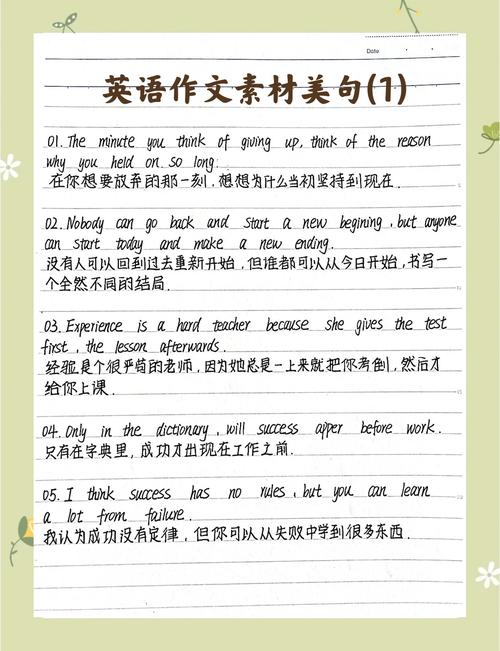 Date
英语作文素材美句(1)
01. The minute you think of giving up, think of the reason
why you held on so long.
在你想要放弃的那一刻，想想为什么当初坚持到现在.
02. Nobody can go back and start a new begining, but anyone
can start today and make a new ending.
没有人可以回到过去重新开始，但谁都可以从今日开始，书写一
个全然不同的结局.
03. Experience is a hard teacher because she gives the test
first, the lesson afterwards.
经验是个很严苛的老师，因为她总是一上来就把你考倒，然后才
给你上课.
04. Only in the dictionary, will success apper before work.
只有在字典里，成功才出现在工作之前.
05. I think success has no rules, but you can learn
a lot from failure.
我认为成功没有定律，但你可以从失败中学到很多东西.